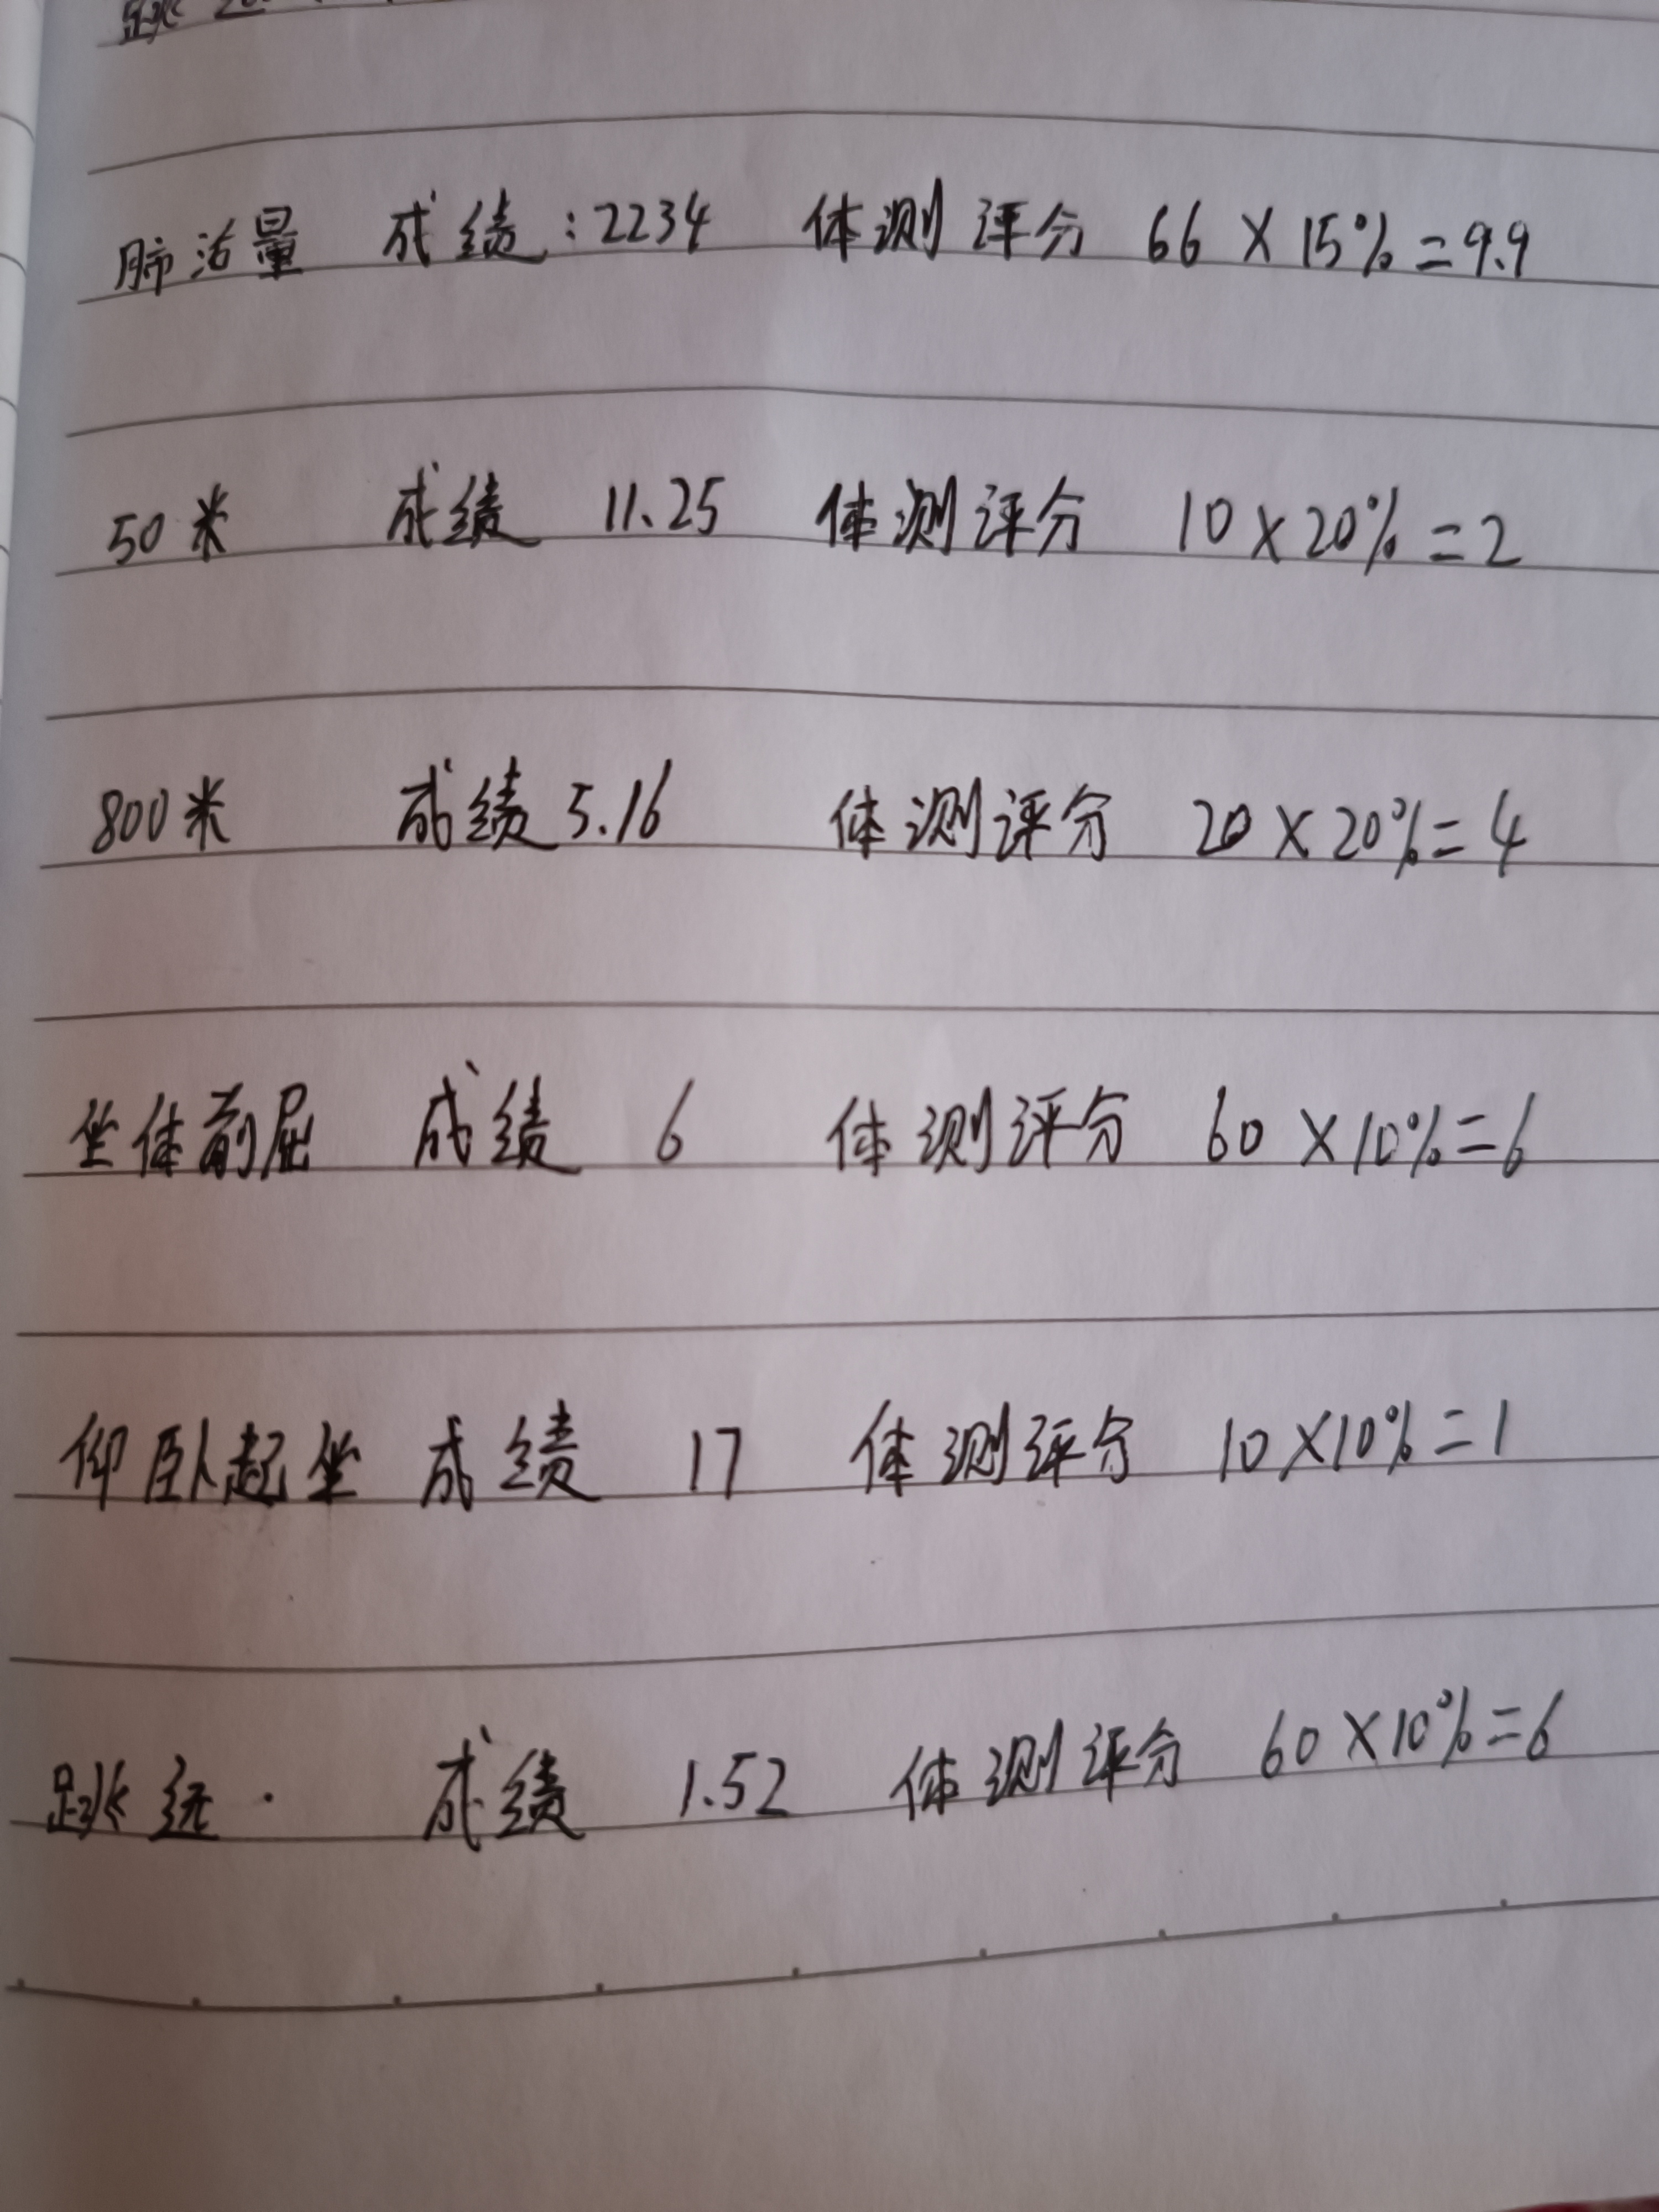 跳
肺活量 成绩:2234 体测评分 66×15%=9.9
50米 成绩 11.25 体测评分 10×20%=2
800米 成绩5.16 体测评分 20×20%=4
坐体前屈 成绩 6 体测评分 60×10%=6
仰卧起坐 成绩 17 体测评分 10×10%=1
跳远. 成绩 1.52 体测评分 60×10%=6